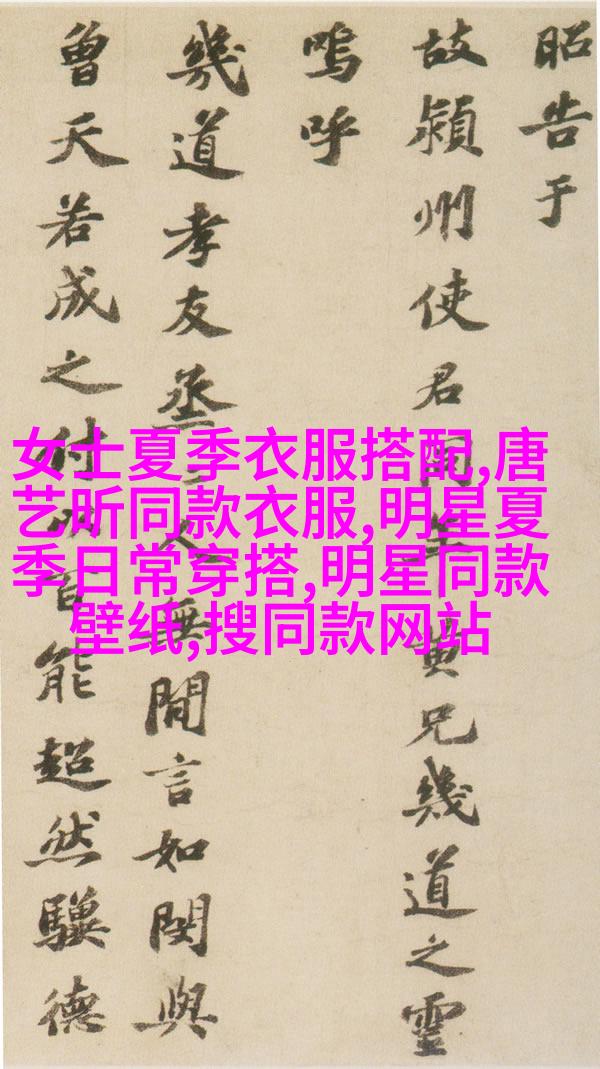 昭告于
故潁州使君同年黄兄幾道之靈
嗚呼
幾道孝友烝々人無間言如閔與
曾天若成之付以百能超然驥德
女士夏季衣服搭配,唐
艺昕同款衣服,明星夏
季日常穿搭,明星同款
壁纸,搜同款网站